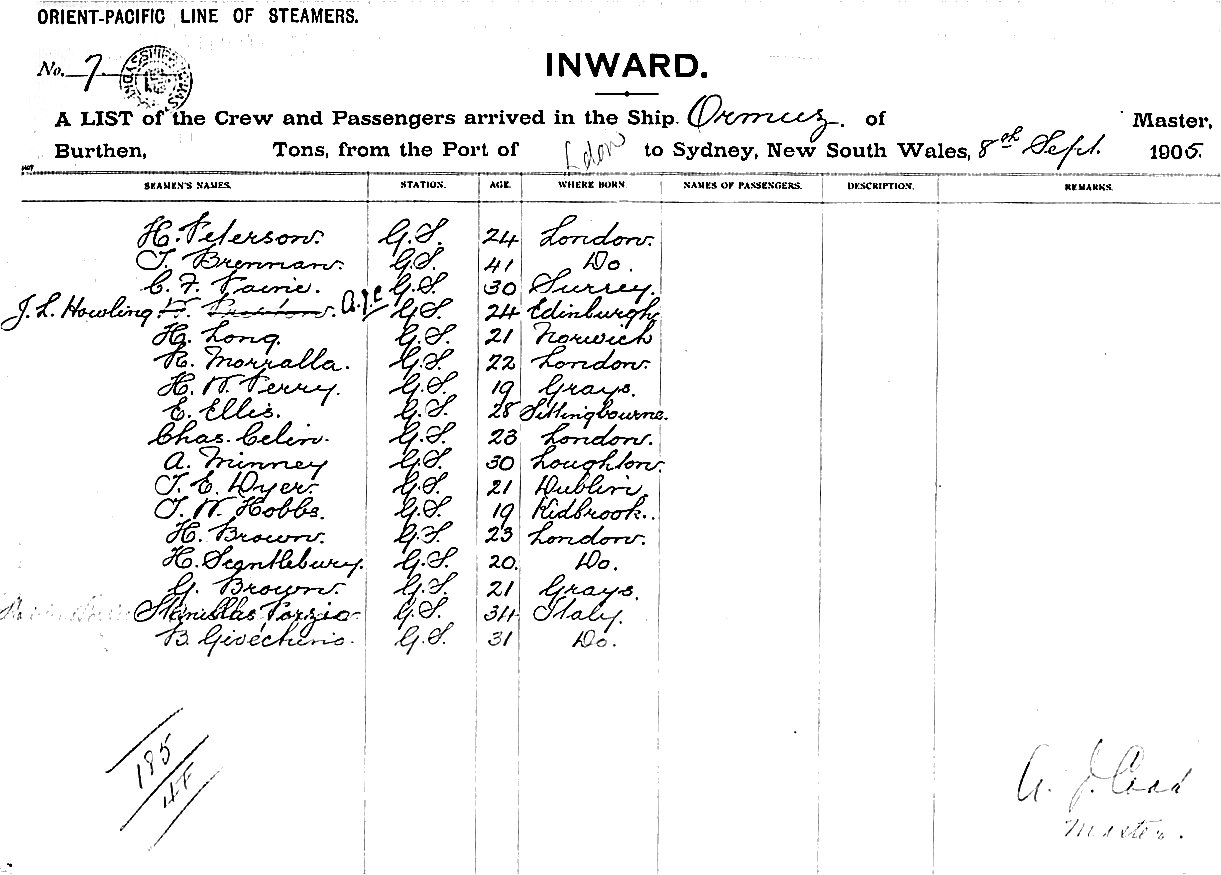 ORIENT-PACIFIC LINE OF STEAMERS.
No. 7
INWARD.
A LIST of the Crew and Passengers arrived in the Ship Ormuz. of Master,
Burthen, Tons, from the Port of Ldon to Sydney, New South Wales, 8th Sept. 1905.
SEAMEN'S NAMES. STATION. AGE. WHERE BORN NAMES OF PASSENGERS. DESCRIPTION. REMARKS.
H. Peterson. G.S. 24 London.
T. Brennan. G.S. 41 Do.
C. F. Paine. G.S. 30 Surrey.
J. L. Howling G.S. 24 Edinburgh
H. Long. G.S. 21 Norwich
R. Morralla. G.S. 22 London.
H. W. Perry. G.S. 19 Grays.
E. Ellis. G.S. 28 Sittingbourne.
Chas. Celin. G.S. 23 London.
A. Minney G.S. 30 Loughton.
T. E. Dyer. G.S. 21 Dublin.
T. W. Hobbs. G.S. 19 Kidbrook.
H. Brown. G.S. 23 London.
H. Scantlebury. G.S. 20. Do.
G. Brown. G.S. 21 Grays.
Stanislas G.S. 34 Italy.
B. G.S. 31 Do.
185
A. J. Coad
Master.